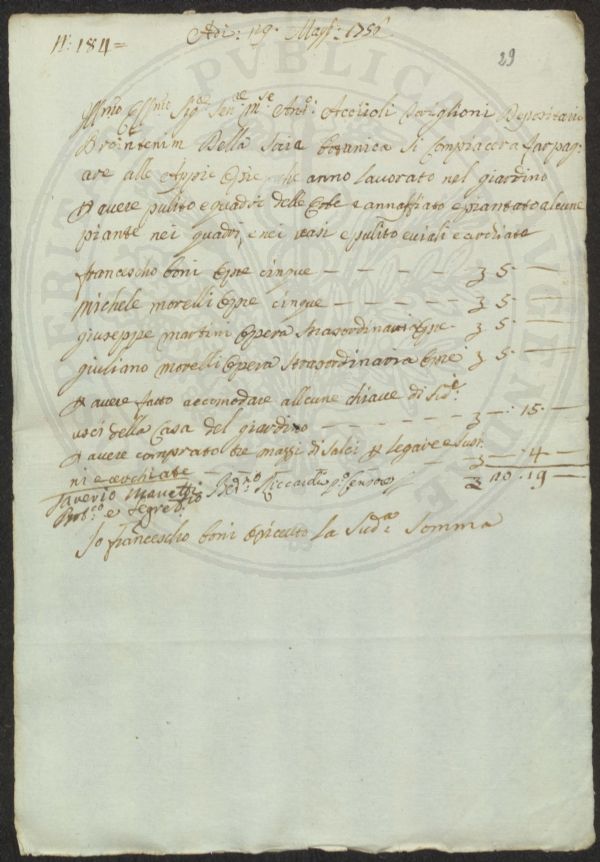 N: 184=
Adi: 19. Magg: 1756
29
Ill:mo Sig:re Sen:re M:se Ant: Accioli Depositario
Della Socie Botanica si Compiacera far pag-
are alle Appie Opre che anno lavorato nel giardino
P avere pulito e quadri delle Erbe e annaffiato e piantato alcune
piante nei quadri, e nei vasi e pulito e viali e cerchiate
francescho boni Opre cinque — — — — — — ʒ 5. —
Michele morelli Opre cinque — — — — — — ʒ 5. —
giuseppe martini Opera Strasordinari Opre ʒ 5. —
giuliano morelli Opera strasordinaria Opre ʒ 5. —
P avere fatto accomodare allcune chiave di Sid:
usci della Casa del giardino — — — — — — ʒ —: 15. —
P avere comprato tre mazzi di Salci P legare e
ni e cerchiate — — — — — — ʒ —: 4 —
Saverio Manetti
e Segret:rio
ʒ 20. 19 —
Io francescho boni o riceuto la Sud:a Somma
PVBLICAE